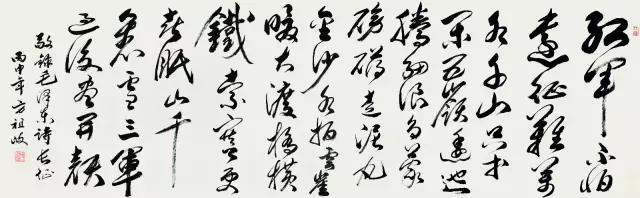 紅軍不怕
遠征難萬
水千山只等
閒五嶺逶迤
騰細浪烏蒙
磅礴走泥丸
金沙水拍雲崖
暖大渡橋橫
鐵索寒更
喜岷山千
里雪三軍
過後盡開顏
敬錄毛澤東詩長征
丙申年方祖岐